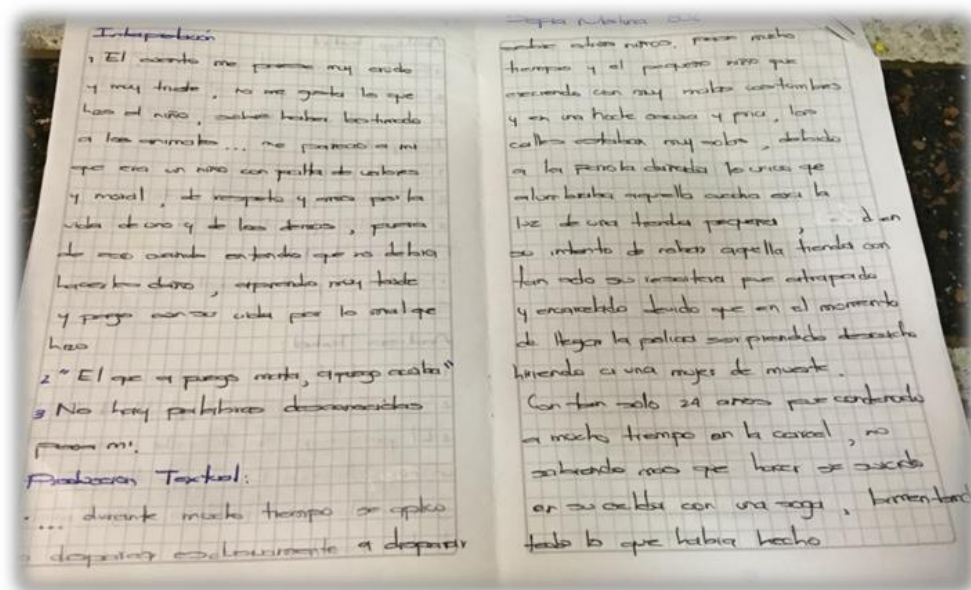 Interpretación
1 El cuento me pareció muy crudo
y muy triste, no me gusta lo que
hizo el niño, sobre haber lastimado
a los animales... me pareció a mi
que era un niño con falta de valores
y moral, de respeto y amor por la
vida de uno y de los demas,
de eso cuando entendio que no debia
hacerle daño, aprendio muy tarde
y pago con su vida por lo mal qe
hizo
2 "El qe a fuego mata, a fuego acaba"
3 No hay palabras desconocidas
para mi.
Produccion Textual:
.... durante mucho tiempo se aplico
a disparar exclusivamente a disparar
Molina
sobre otros niños. Paso mucho
tiempo y el pequeño niño que
creciendo con muy malas costumbres
y en una noche oscura y fria, las
calles estaban muy solas, debido
a la lo unico que
alumbraba aquella noche era la
luz de una tienda pequeña, en
su intento de robar aquella tienda con
tan solo su fue atrapado
y encarcelado devido que en el momento
de llegar la policia sorprendido
hiriendo a una mujer de muerte.
Con tan solo 24 años fue condenado
a mucho tiempo en la carcel, no
sabiendo mas que hacer se suicido
en su celda con una soga, lamentando
todo lo que habia hecho